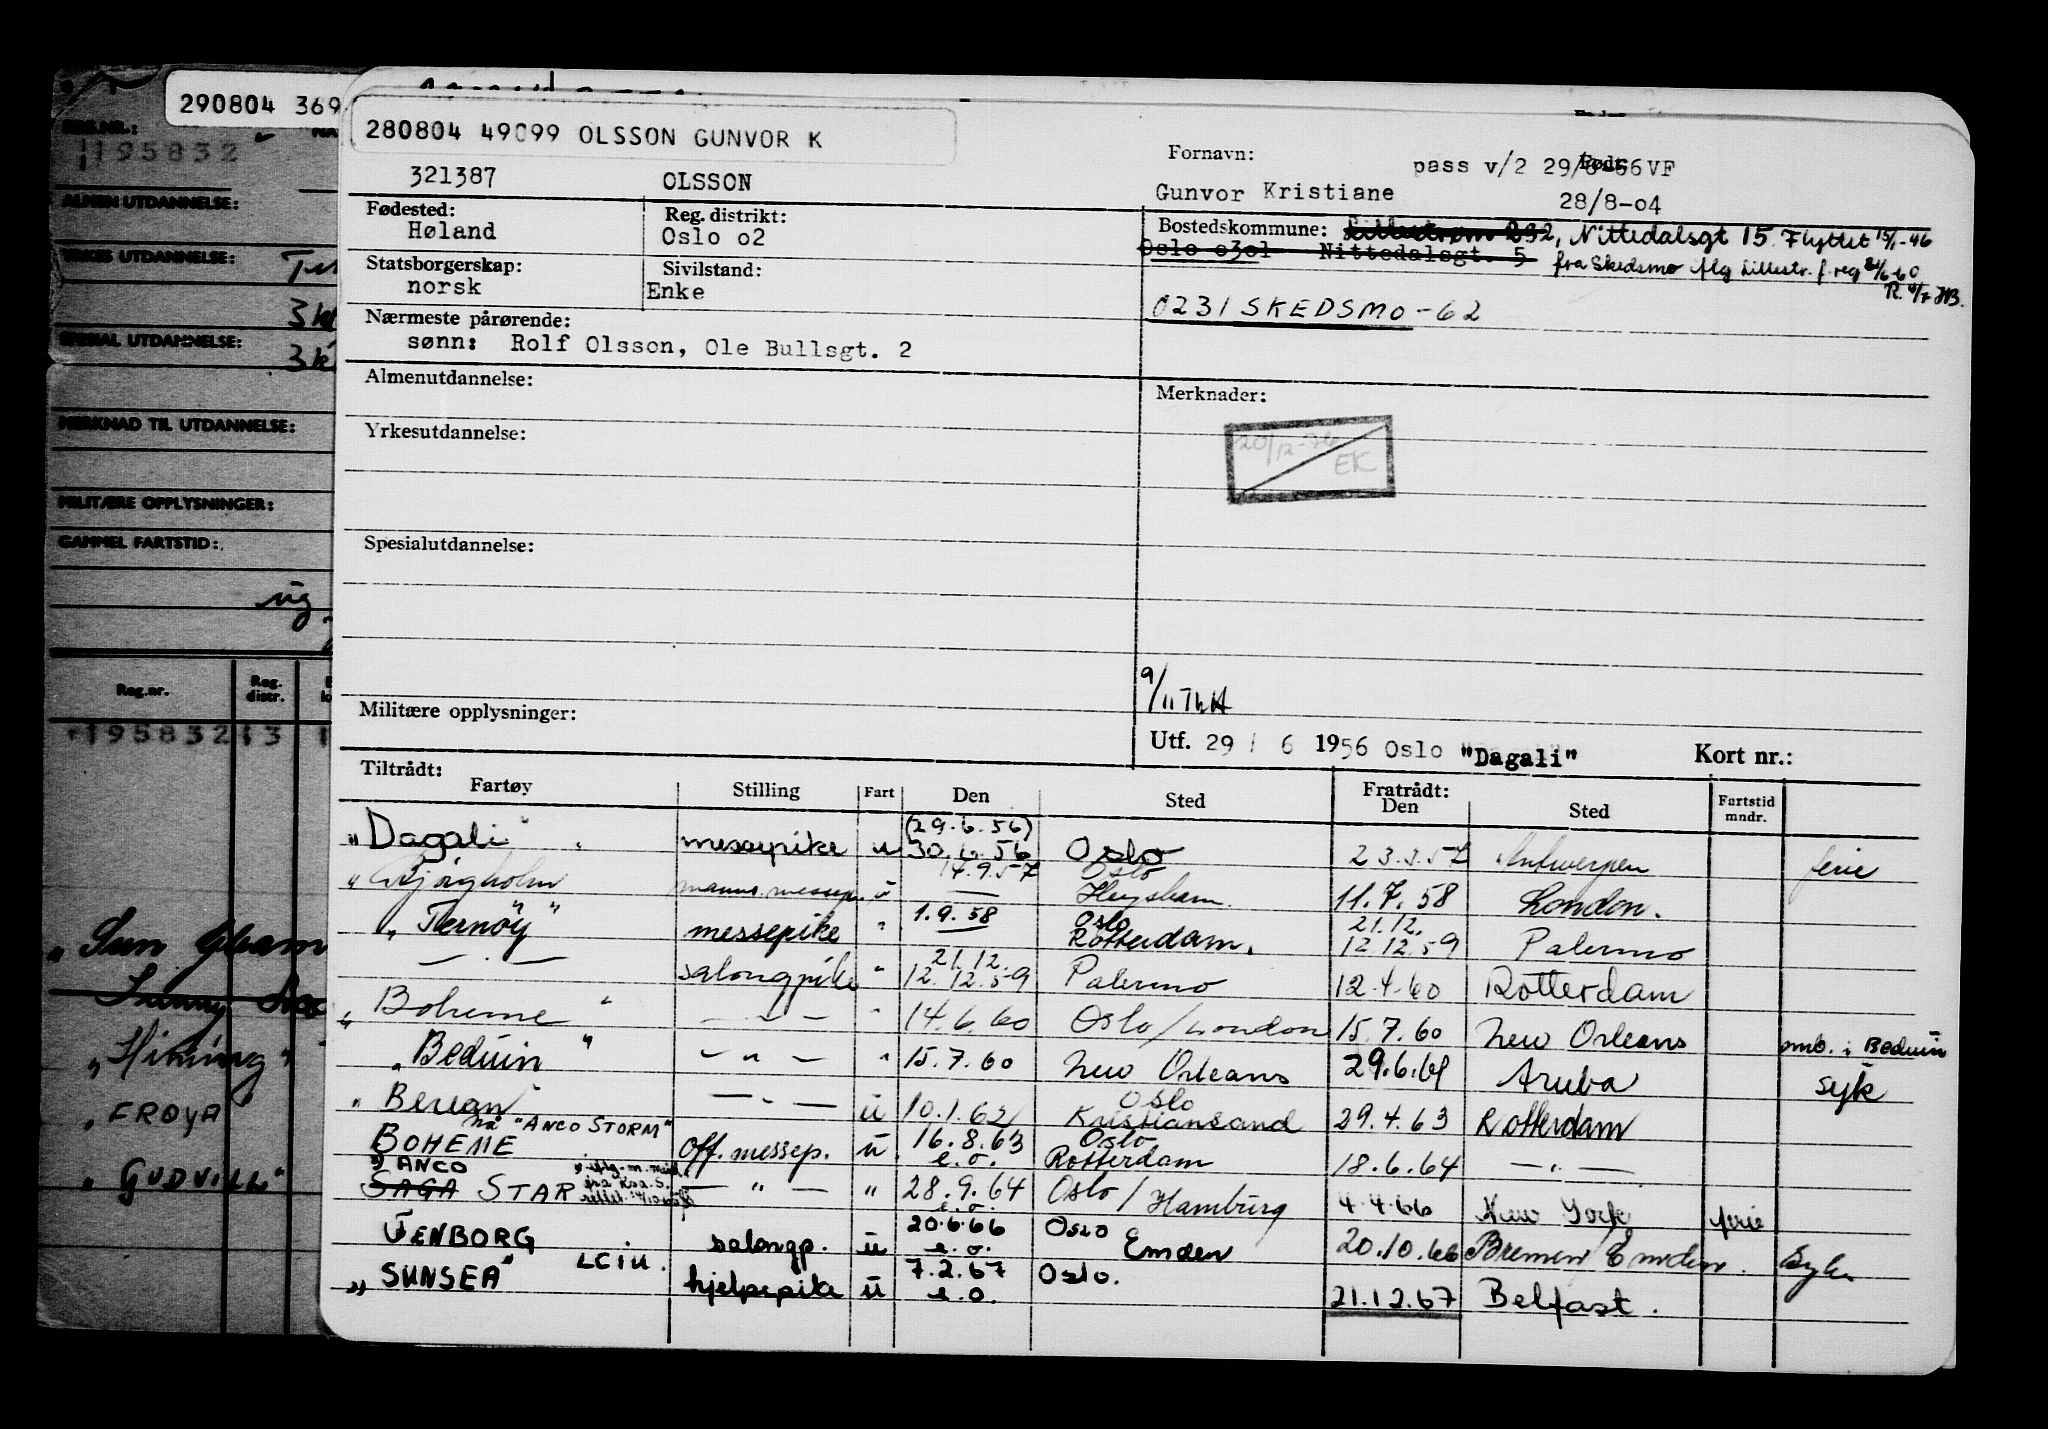 290804 369
REG.NR.:
195832
ALMEN UTDANNELSE:
YRKES UTDANNELSE:
SPESIAL UTDANNELSE:
MERKNAD TIL UTDANNELSE:
MILITÆRE OPPLYSNINGER:
GAMMEL FARTSTID:
Reg.nr. Reg. distr.
195832 13
"Sun Gleam
"Himing"
"FRØYA
"GUDVILL"
280804 49099 OLSSON GUNVOR K
321387 OLSSON
Fornavn: pass v/2 29/6-56 VF
Gunvor Kristiane 28/8-04
Fødested: Høland
Reg. distrikt: Oslo 02
Bostedskommune: Lillestrøm 232, Nittedalsgt 15. Flyttet 15/1-46
Oslo o3o1 Nittedalsgt. 5 fra Skedsmo iflg Lillestr. f.reg 21/6-60
Statsborgerskap: norsk
Sivilstand: Enke
0231 SKEDSMO-62
Nærmeste pårørende:
sønn: Rolf Olsson, Ole Bullsgt. 2
Almenutdannelse:
Merknader:
20/12-76 EK
Yrkesutdannelse:
Spesialutdannelse:
9/11 ThH
Militære opplysninger:
Utf. 29 / 6 1956 Oslo "Dagali" Kort nr.:
Tiltrådt: Fratrådt:
Fartøy Stilling Fart Den Sted Den Sted Fartstid mndr.
(29.6.56)
"Dagali" messepike u 30.6.56 Oslo 23.3.57 Antwerpen ferie
14.9.57 Oslo
"Bjørgholm manns.messep. u — Heysham 11.7.58 London.
1.9.58 Oslo 21.12.
"Ternøy" messepike " — Rotterdam. 12.12.59 Palermo
21.12.
— " — salongpike " 12.12.59 Palermo 12.4.60 Rotterdam
"Boheme" — " — " 14.6.60 Oslo/London 15.7.60 New Orleans omb. i Beduin
"Beduin" — " — " 15.7.60 New Orleans 29.6.61 Aruba syk
Oslo
"Berean" — " — u 10.1.62 Kristiansand 29.4.63 Rotterdam
nå "ANCO STORM" 16.8.63 Oslo
BOHEME off. messep. u e.o. Rotterdam 18.6.64 — " —
"ANCO
SAGA STAR — " — " 28.9.64 Oslo/Hamburg 4.4.66 New York ferie
e.o.
20.6.66 Oslo
JENBORG salongp. u e.o. Emden 20.10.66 Bremen Emden. Syk
"SUNSEA" LCIU. hjelpepike u 7.2.67 Oslo. 21.12.67 Belfast.
e.o.